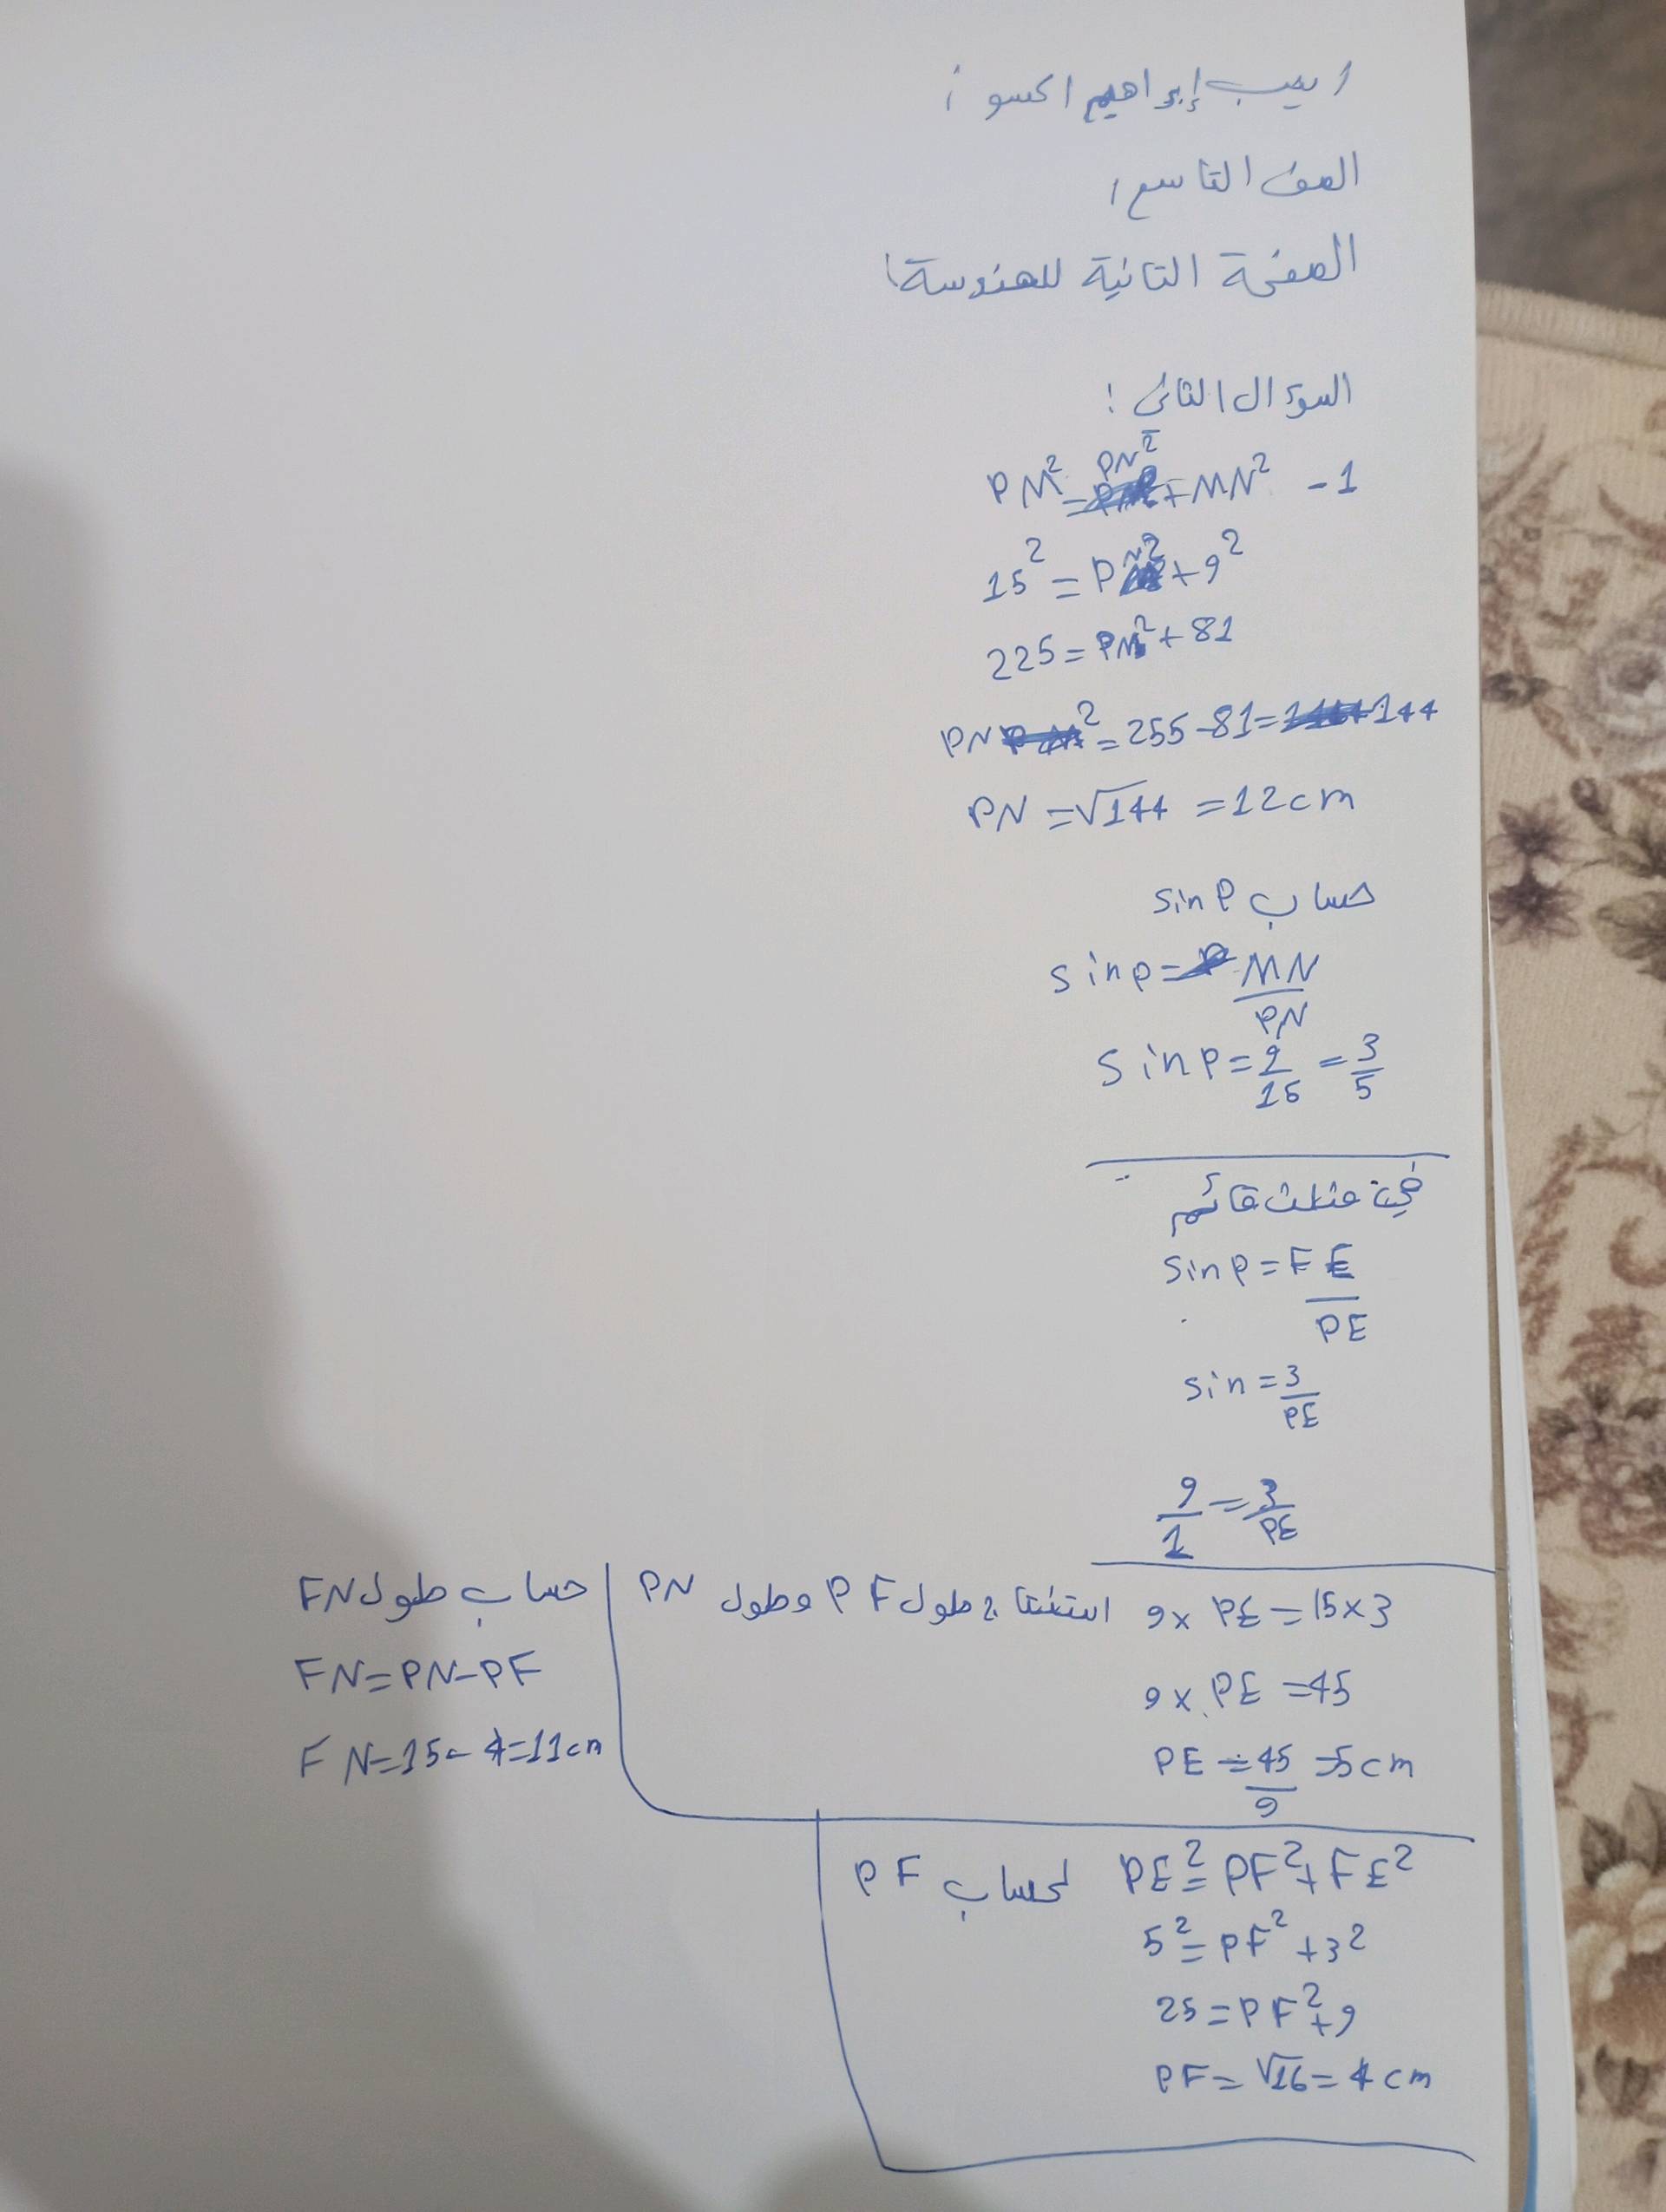 إبراهيم
الصف التاسع
الصفحة الثانية للهندسة
السؤال الثاني :
PM² = PN² + MN² - 1
15² = PN² + 9²
225 = PN² + 81
PN² = 255 - 81 = 144
PN = √144 = 12 cm
حساب sin P
sin p = MN / PN
sin P = 9/15 = 3/5
في مثلث قائم
sin P = FE / PE
sin = 3 / PE
9/1 = 3/PE
9 x PE = 15 x 3
9 x PE = 45
PE = 45/9 = 5 cm
استنتاج طول PF وطول PN
حساب طول FN
FN = PN - PF
FN = 15 - 4 = 11 cm
لحساب PF
PE² = PF² + FE²
5² = PF² + 3²
25 = PF² + 9
PF = √16 = 4 cm